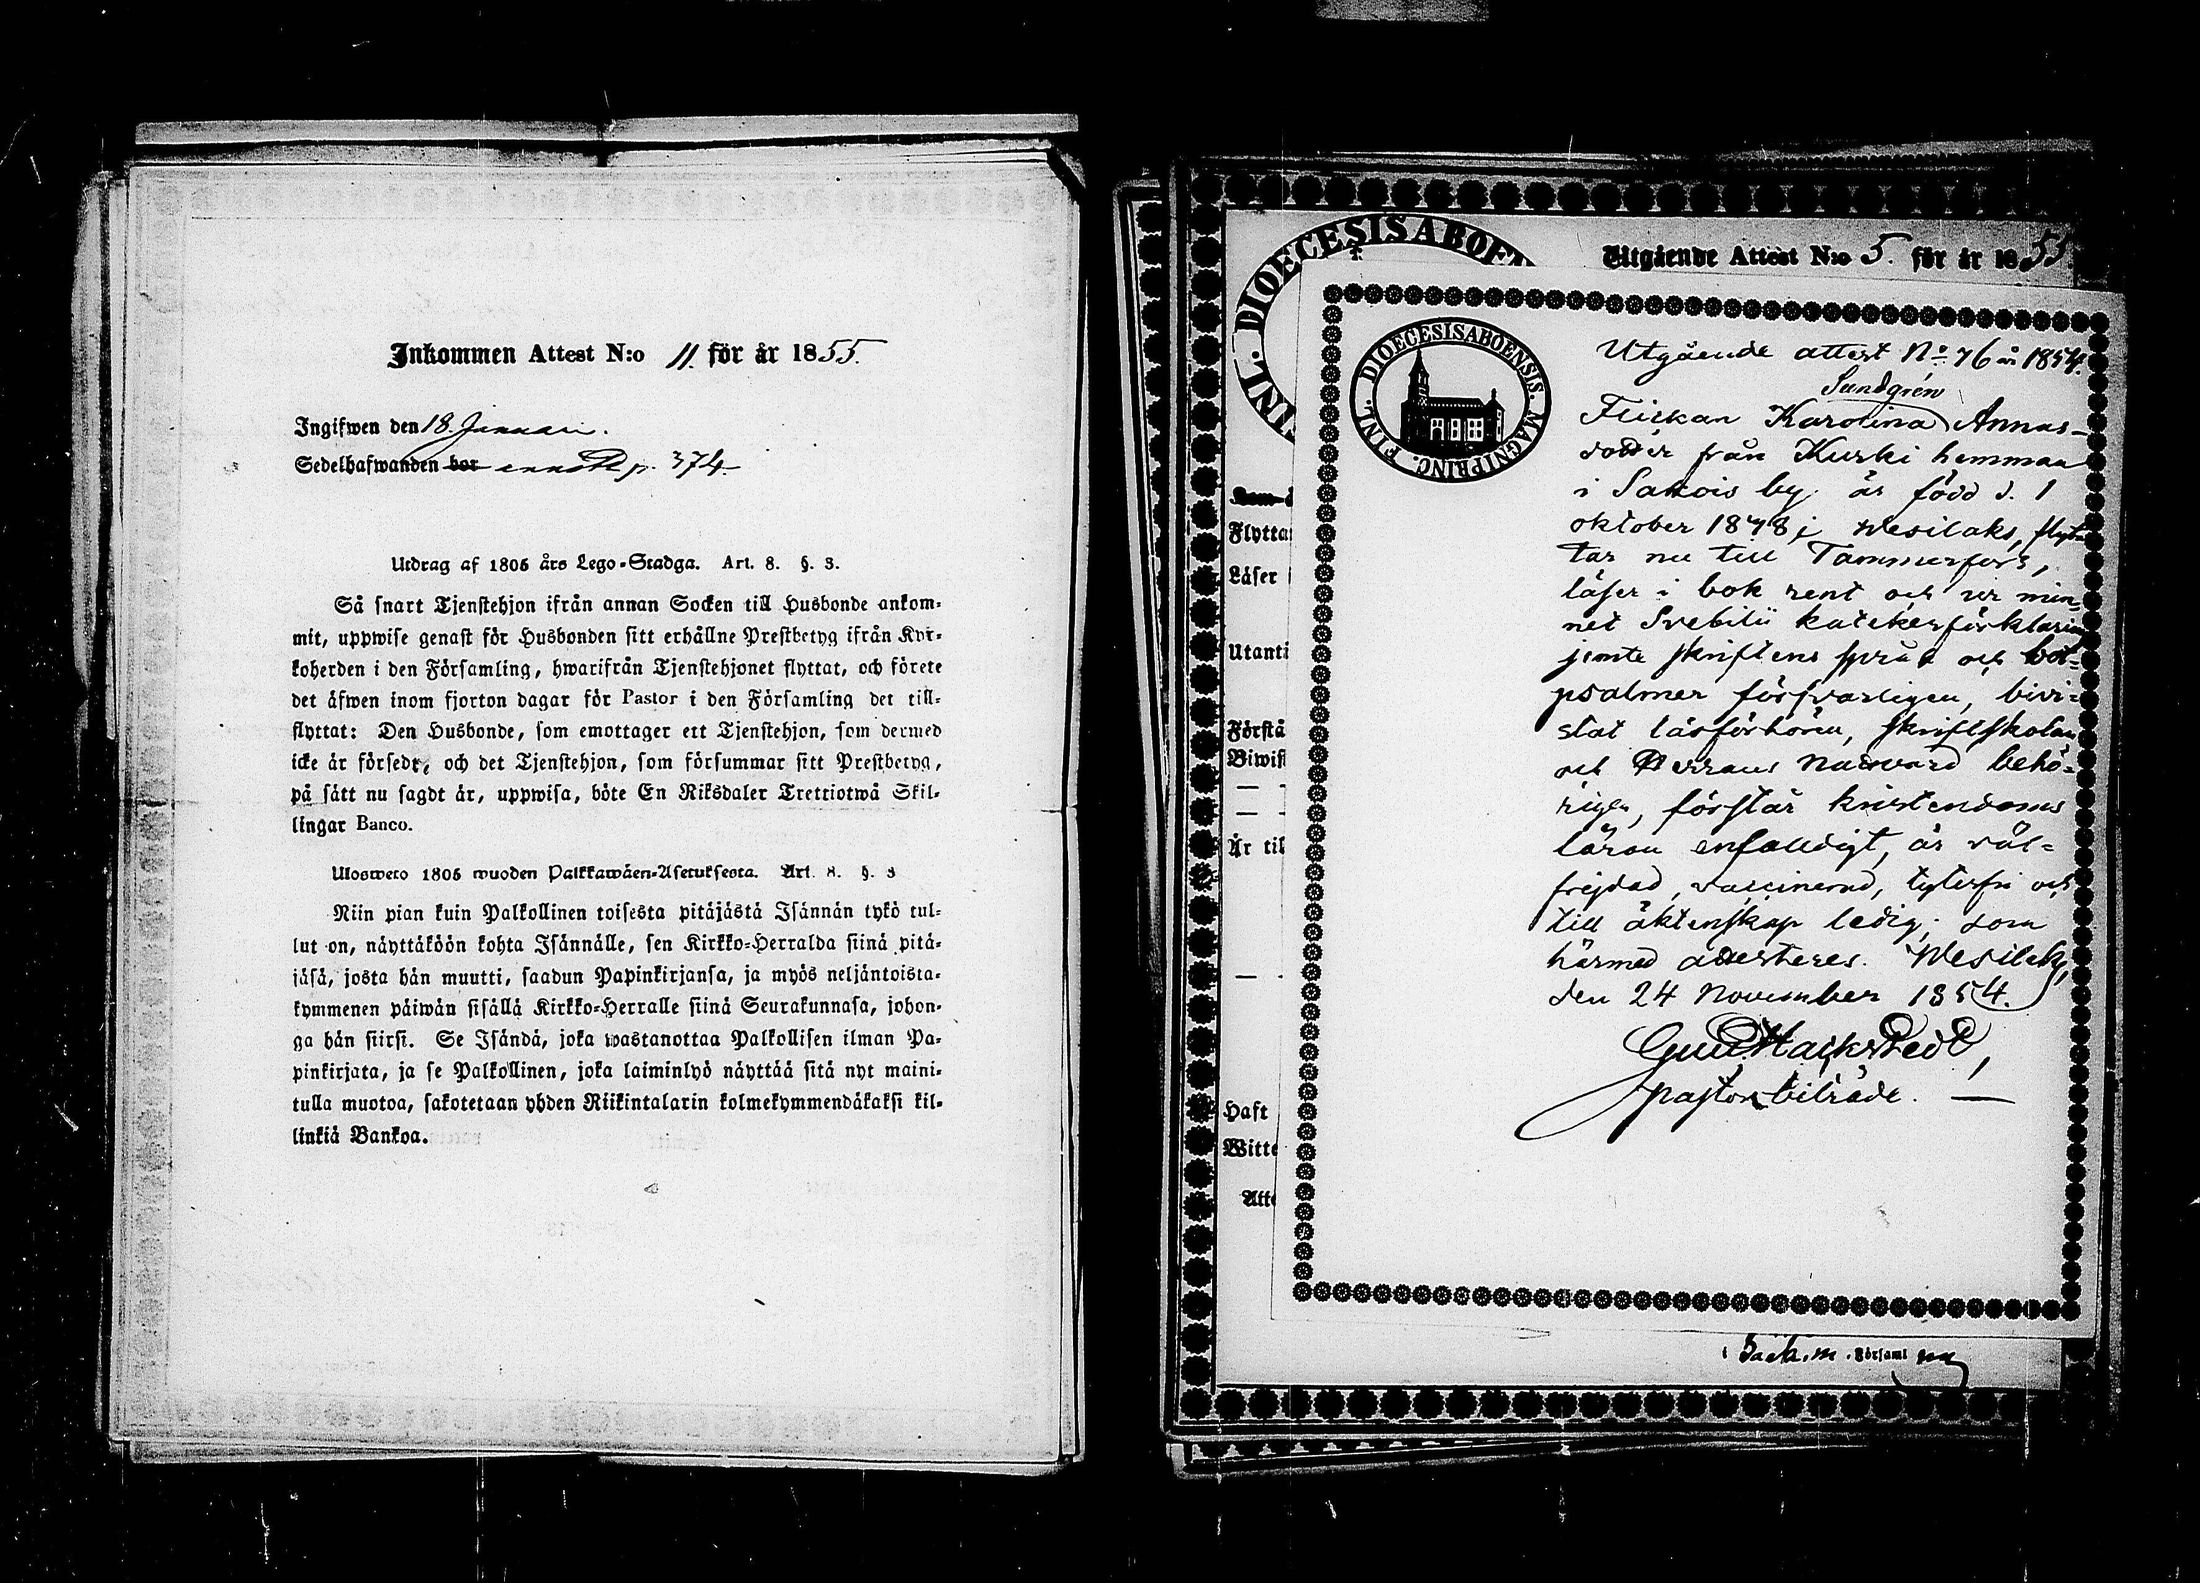 Inkommen Attest N:o 11. för år 1855.
Ingifwen den 18. Januari.
Sedelhafwanden bor p. 374
Utdrag af 1805 års Lego-Stadga. Art. 8. §. 3.
Så snart Tjenstehjon ifrån annan Socken till Husbonde ankom-
mit, uppwise genast för Husbonden sitt erhållne Prestbetyg ifrån Kyr-
koherden i den Församling, hwarifrån Tjenstehjonet flyttat, och förete
det äfwen inom fjorton dagar för Pastor i den Församling det till-
flyttat: Den Husbonde, som emottager ett Tjenstehjon, som dermed
icke är försedt, och det Tjenstehjon, som försummar sitt Prestbetyg,
på sätt nu sagdt är, uppwisa, böte En Riksdaler Trettiotwå Skil-
lingar Banco.
Ulosweto 1805 wuoden Palkkawäen-Asetuksesta. Art. 8. §. 3
Niin pian kuin Palkollinen toisesta pitäjästä Isännän tykö tul-
lut on, näyttäköön kohta Isännälle, sen Kirkko-Herralda siinä pitä-
jäsä, josta hän muutti, saadun Papinkirjansa, ja myös neljäntoista-
kymmenen päiwän sisällä Kirkko-Herralle siinä Seurakunnasa, johon-
ga hän siirsi. Se Isändä, joka wastanottaa Palkollisen ilman Pa-
pinkirjata, ja se Palkollinen, joka laiminlyö näyttää sitä nyt maini-
tulla muotoa, sakotetaan yhden Riikintalarin kolmekymmendäkaksi kil-
linkiä Bankoa.
DIOECESIS ABOEN
FINL.
Utgående Attest N:o 5. för år 1855
Flytta
Läser
Utanti
Förstå
Biwist
Är til
Haft
Witte
Atte
DIOECESIS ABOENSIS. MAGNI PRINC. FINL.
Utgående attest No 76 år 1854.
Sundgrén
Flickan Karolina Annas-
dotter från Kurki hemman
i Sakois by. är född d. 1
oktober 1848 i Wesilaks, flyt-
tar nu till Tammerfors,
läser i bok rent och ur min-
net Svebilii katekesförklaring
jemte skriftens språk och bot-
psalmer försvarligen, bivi-
stat läsförhören, skriftskolan
och Herrans nattvard behö-
rigen, förstår kristendoms
läran enfaldigt, är väl-
frejdad, vaccinerad, lyterfri och
till äktenskap ledig; som
härmed attesteres. Wesilaks,
den 24 November 1854.
Hackstedt,
pastorsbiträde.
i Församl